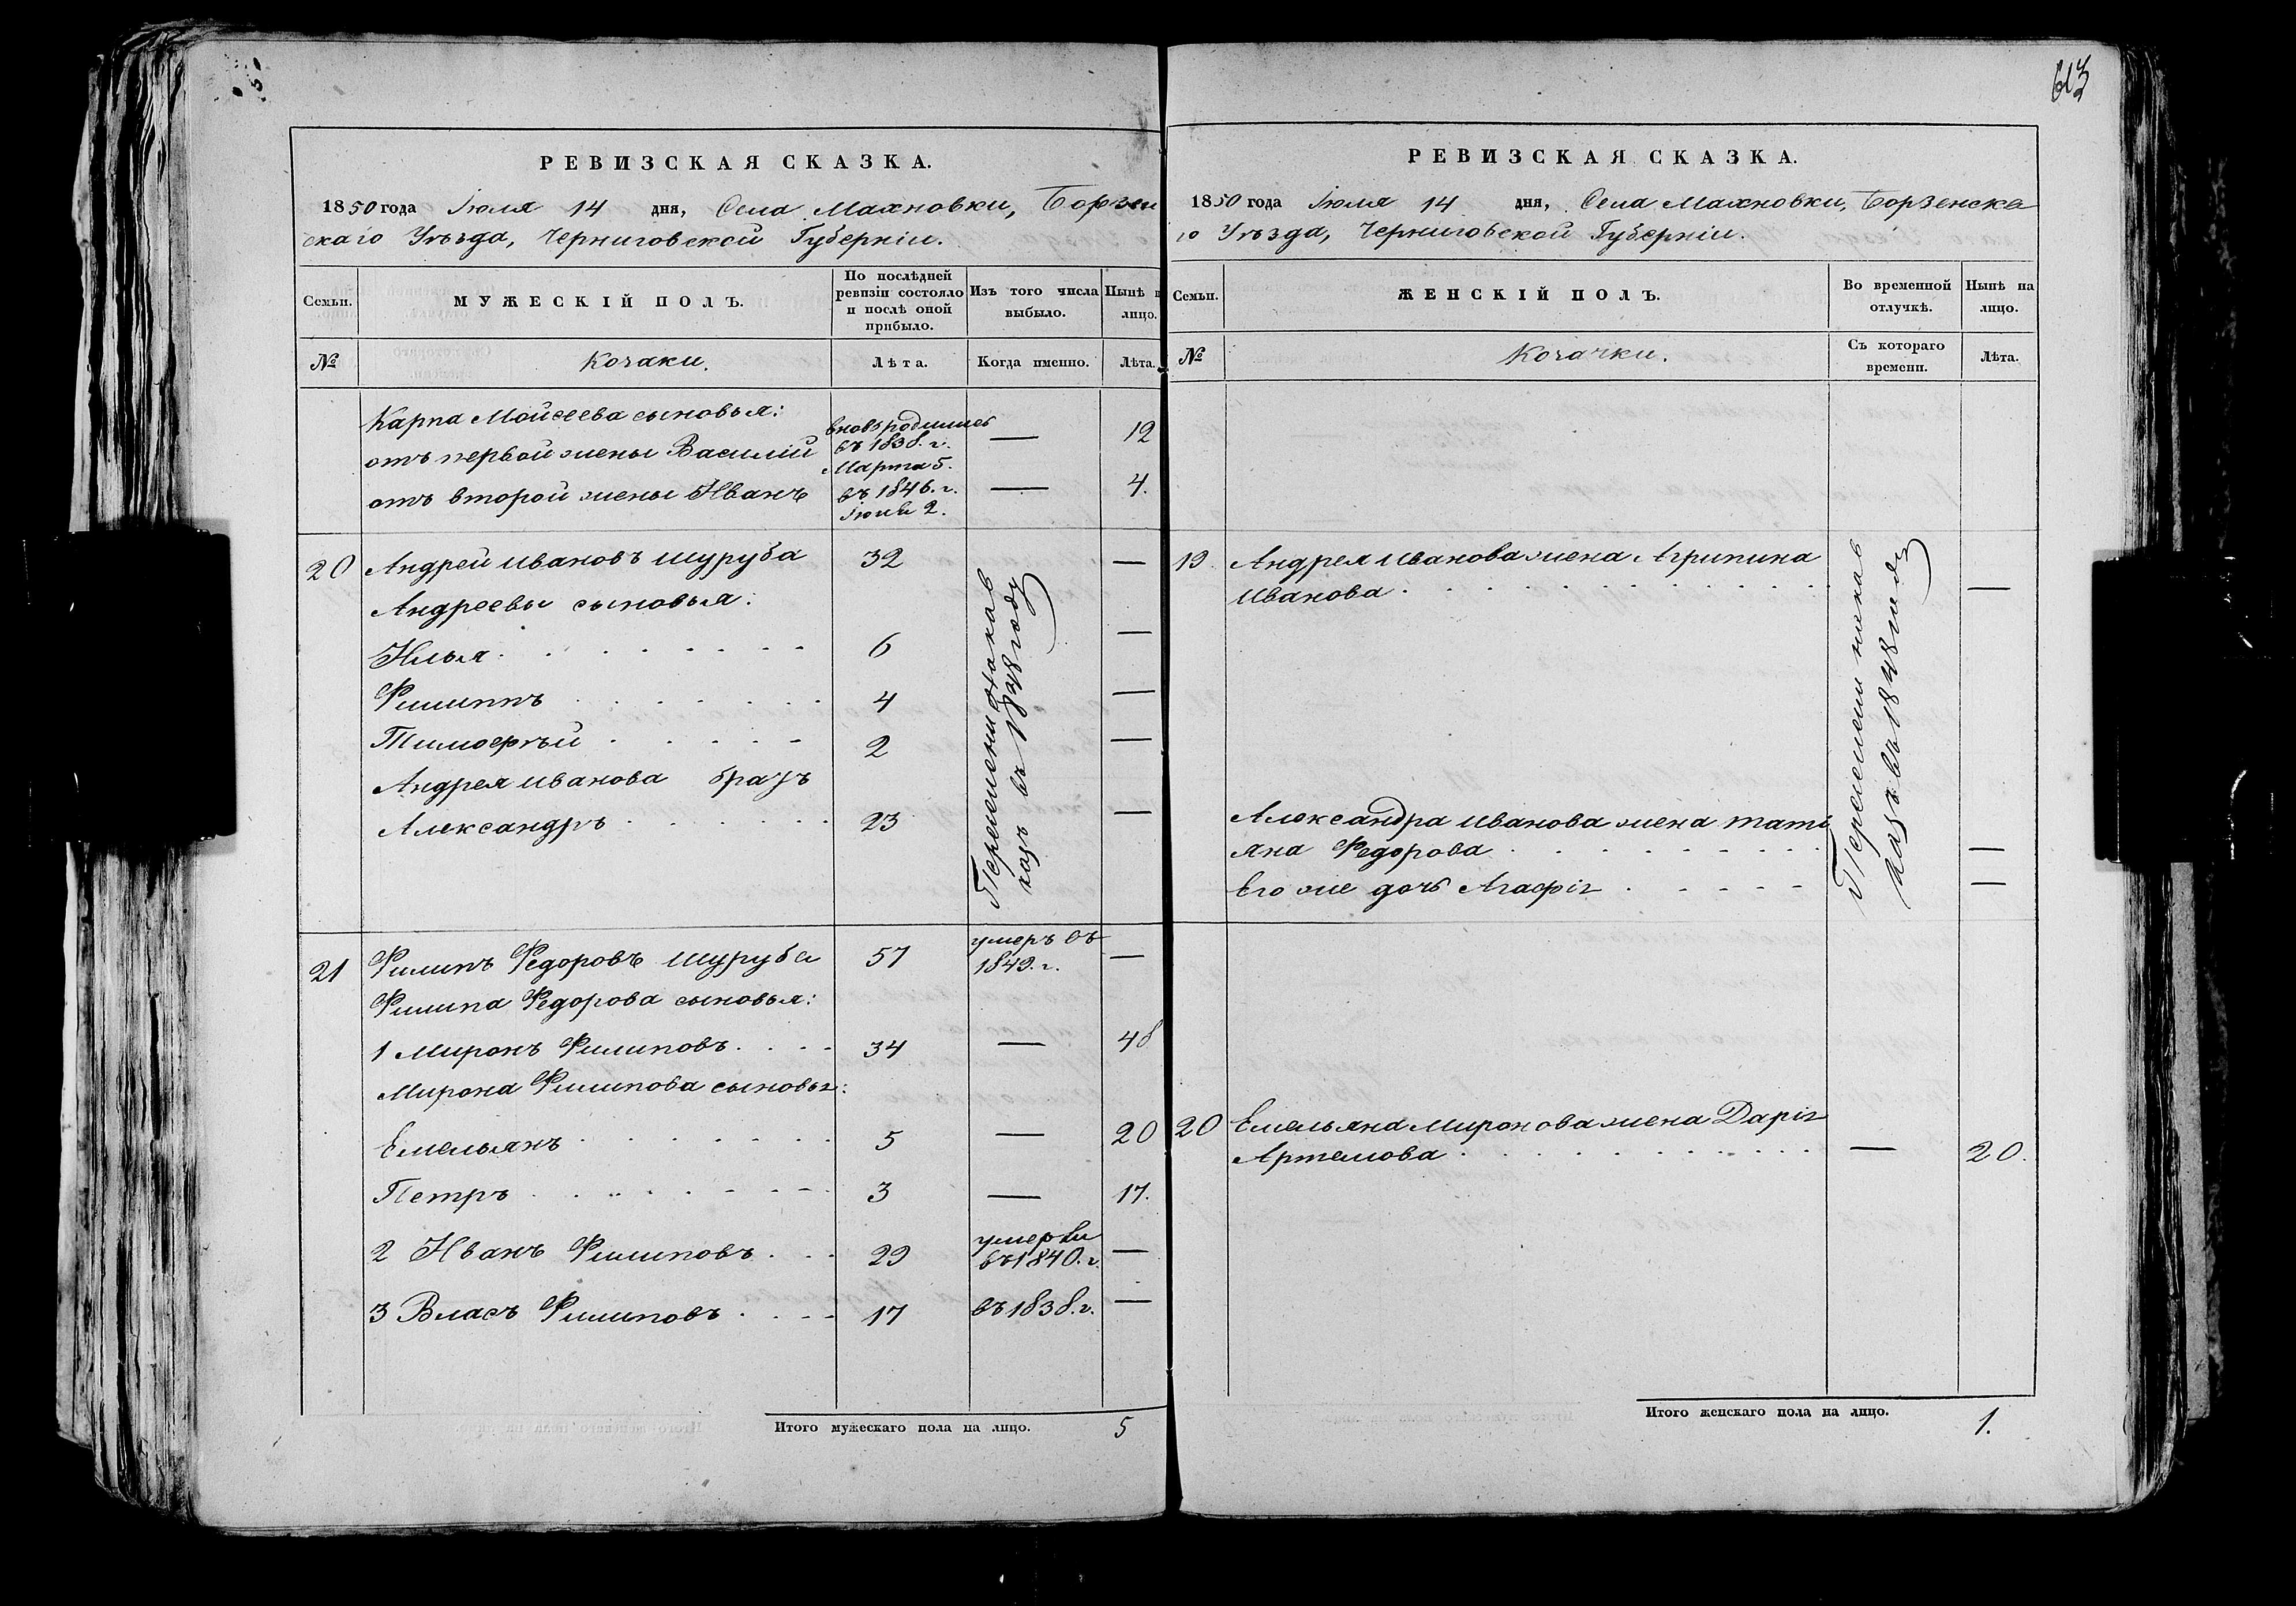 613
РЕВИЗСКАЯ СКАЗКА.
1850 года Іюля 14 дня, Села Махновки, Борзен
скаго Уѣзда, Черниговской Губерніи.
Семьи.
МУЖЕСКІЙ ПОЛЪ.
По послѣдней
ревизіи состояло
и послѣ оной
прибыло.
Изъ того числа
выбыло.
Нынѣ н
лицо.
№
Козаки.
Лѣта.
Когда именно.
Лѣта.
Карпа Мойсеева сыновья:
отъ первой жены Василій
вновь родились
въ 1838. г.
Марта 5.
—
12
отъ второй жены Иванъ
въ 1846. г.
Іюня 2.
—
4.
20 Андрей Ивановъ Шуруба 32 —
Андреевы сыновья:
Илья 6 —
Филиппъ 4 —
Тимофѣй 2 —
Андрея Иванова братъ
Александръ 23 —
въ 1848 году
21 Филипъ Федоровъ Шуруба 57
умеръ въ
1849. г.
—
Филипа Федорова сыновья:
1 Миронъ Филиповъ 34 — 48
Мирона Филипова сыновья:
Емельянъ 5 — 20
Петръ 3 — 17.
2 Иванъ Филиповъ 29
умерли
въ 1840. г.
—
3 Власъ Филиповъ 17 въ 1838. г. —
Итого мужескаго пола на лицо. 5
РЕВИЗСКАЯ СКАЗКА.
1850 года Іюля 14 дня, Села Махновки, Борзенска
го Уѣзда, Черниговской Губерніи.
Семьи.
ЖЕНСКІЙ ПОЛЪ.
Во временной
отлучкѣ.
Нынѣ на
лицо.
№
Козачки.
Съ котораго
времени.
Лѣта.
19 Андрея Иванова жена Агрипина
Иванова —
Александра Иванова жена Тать
яна Федорова —
Его же дочь Агафія —
въ 1848 году
20 Емельяна Миронова жена Дарія
Артемова — 20.
Итого женскаго пола на лицо. 1.